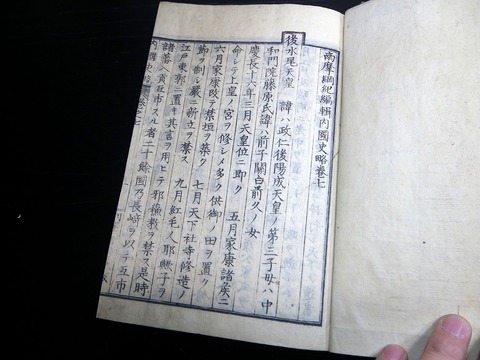 南摩綱紀編輯内國史略卷七
後水尾天皇 諱ハ政仁後陽成天皇ノ第三子母ハ中
和門院藤原氏諱ハ前子關白前久ノ女
慶長十六年三月天皇位ニ即ク 五月家康諸侯ニ
命シテ上皇ノ宮ヲ修シメ多ク供御ノ田ヲ置ク
六月家康政テ禁垣ヲ築ク 七月天下社寺修造ノ
節ヲ制シ嚴ニ新立ヲ禁ス 九月紅毛人耶子ヲ
江戸東郭ニ置キ其言ヲ用ヒテ邪蘓教ヲ禁ス是時
諸蕃入貢互市スル者二十餘國乃長﨑ヲ以テ互市